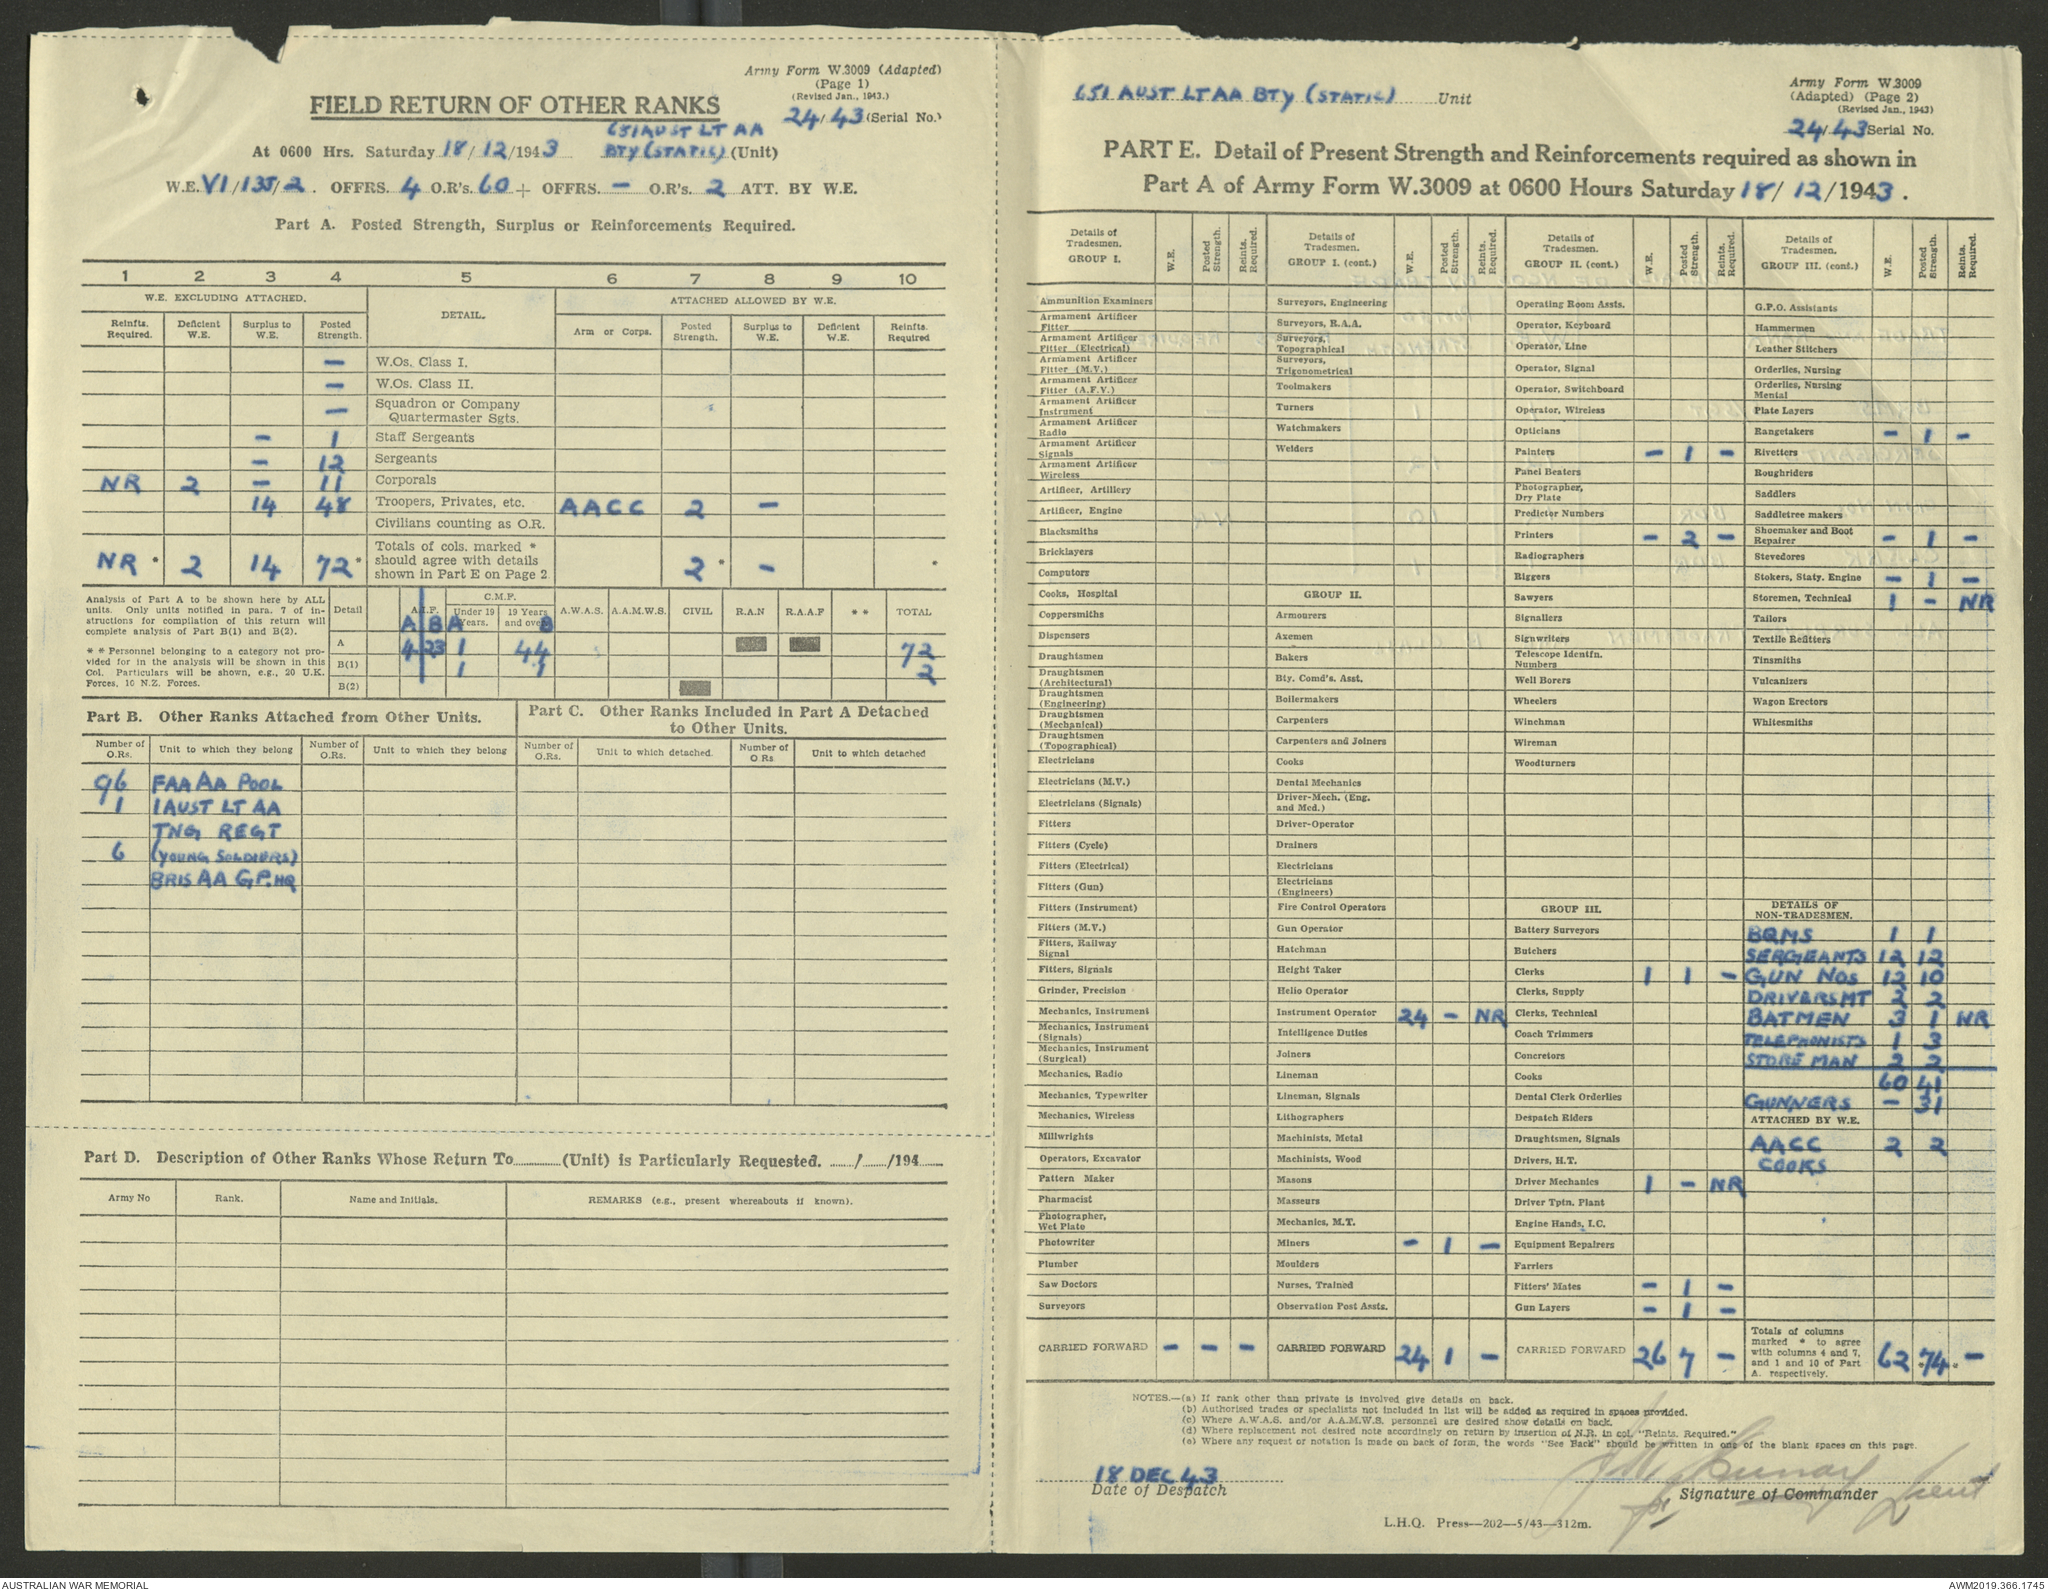 Army Form W.3009 (Adapted)
(Page 1)
(Revised Jan., 1943.)
FIELD RETURN OF OTHER RANKS
24/43 (Serial No.)
651 AUST LT AA
At 0600 Hrs. Saturday 18/12/1943 BTY (STATIC) (Unit)
W.E. VI/135/2. OFFRS. 4 O.R's. 60 + OFFRS. — O.R's. 2 ATT. BY W.E.
Part A. Posted Strength, Surplus or Reinforcements Required.
1 2 3 4 5 6 7 8 9 10
W.E. EXCLUDING ATTACHED. DETAIL. ATTACHED ALLOWED BY W.E.
Reinfts. Required. Deficient W.E. Surplus to W.E. Posted Strength. Arm or Corps. Posted Strength. Surplus to W.E. Deficient W.E. Reinfts. Required
— W.Os. Class I.
— W.Os. Class II.
— Squadron or Company Quartermaster Sgts.
— 1 Staff Sergeants
— 12 Sergeants
NR 2 — 11 Corporals
14 48 Troopers, Privates, etc. AACC 2 —
Civilians counting as O.R.
NR * 2 14 72 * Totals of cols. marked * should agree with details shown in Part E on Page 2. 2 * — *
Analysis of Part A to be shown here by ALL
units. Only units notified in para. 7 of in-
structions for compilation of this return will
complete analysis of Part B(1) and B(2).
* * Personnel belonging to a category not pro-
vided for in the analysis will be shown in this
Col. Particulars will be shown, e.g., 20 U.K.
Forces, 10 N.Z. Forces.
Detail A.I.F. C.M.F. Under 19 Years. 19 Years and over A.W.A.S. A.A.M.W.S. CIVIL R.A.N R.A.A.F * * TOTAL
A B A B
A 4 23 1 44 72
B(1) 1 1 2
B(2)
Part B. Other Ranks Attached from Other Units.
Part C. Other Ranks Included in Part A Detached
to Other Units.
Number of O.Rs. Unit to which they belong Number of O.Rs. Unit to which they belong Number of O.Rs. Unit to which detached. Number of O.Rs Unit to which detached
96 FAA AA POOL
1 1 AUST LT AA
TNG REGT
6 (YOUNG SOLDIERS)
BRIS AA GP. HQ
Part D. Description of Other Ranks Whose Return To (Unit) is Particularly Requested. / /194
Army No Rank. Name and Initials. REMARKS (e.g., present whereabouts if known).
651 AUST LT AA BTY (STATIC) Unit
Army Form W.3009
(Adapted) (Page 2)
(Revised Jan., 1943)
24/43 Serial No.
PART E. Detail of Present Strength and Reinforcements required as shown in
Part A of Army Form W.3009 at 0600 Hours Saturday 18/12/1943.
Details of Tradesmen. GROUP I. W.E. Posted Strength. Reinfts. Required.
Ammunition Examiners
Armament Artificer Fitter
Armament Artificer Fitter (Electrical)
Armament Artificer Fitter (M.V.)
Armament Artificer Fitter (A.F.V.)
Armament Artificer Instrument
Armament Artificer Radio
Armament Artificer Signals
Armament Artificer Wireless
Artificer, Artillery
Artificer, Engine
Blacksmiths
Bricklayers
Computors
Cooks, Hospital
Coppersmiths
Dispensers
Draughtsmen
Draughtsmen (Architectural)
Draughtsmen (Engineering)
Draughtsmen (Mechanical)
Draughtsmen (Topographical)
Electricians
Electricians (M.V.)
Electricians (Signals)
Fitters
Fitters (Cycle)
Fitters (Electrical)
Fitters (Gun)
Fitters (Instrument)
Fitters (M.V.)
Fitters, Railway Signal
Fitters, Signals
Grinder, Precision
Mechanics, Instrument
Mechanics, Instrument (Signals)
Mechanics, Instrument (Surgical)
Mechanics, Radio
Mechanics, Typewriter
Mechanics, Wireless
Millwrights
Operators, Excavator
Pattern Maker
Pharmacist
Photographer, Wet Plate
Photowriter
Plumber
Saw Doctors
Surveyors
CARRIED FORWARD — — —
Details of Tradesmen. GROUP I. (cont.) W.E. Posted Strength. Reinfts. Required.
Surveyors, Engineering
Surveyors, R.A.A.
Surveyors, Topographical
Surveyors, Trigonometrical
Toolmakers
Turners
Watchmakers
Welders
GROUP II.
Armourers
Axemen
Bakers
Bty. Comd's. Asst.
Boilermakers
Carpenters
Carpenters and Joiners
Cooks
Dental Mechanics
Driver-Mech. (Eng. and Med.)
Driver-Operator
Drainers
Electricians
Electricians (Engineers)
Fire Control Operators
Gun Operator
Hatchman
Height Taker
Helio Operator
Instrument Operator 24 — NR
Intelligence Duties
Joiners
Lineman
Lineman, Signals
Lithographers
Machinists, Metal
Machinists, Wood
Masons
Masseurs
Mechanics, M.T.
Miners — 1 —
Moulders
Nurses, Trained
Observation Post Assts.
CARRIED FORWARD 24 1 —
Details of Tradesmen. GROUP II. (cont.) W.E. Posted Strength. Reinfts. Required.
Operating Room Assts.
Operator, Keyboard
Operator, Line
Operator, Signal
Operator, Switchboard
Operator, Wireless
Opticians
Painters — 1 —
Panel Beaters
Photographer, Dry Plate
Predictor Numbers
Printers — 2 —
Radiographers
Riggers
Sawyers
Signallers
Signwriters
Telescope Identfn. Numbers
Well Borers
Wheelers
Winchman
Wireman
Woodturners
GROUP III.
Battery Surveyors
Butchers
Clerks 1 1 —
Clerks, Supply
Clerks, Technical
Coach Trimmers
Concretors
Cooks
Dental Clerk Orderlies
Despatch Riders
Draughtsmen, Signals
Drivers, H.T.
Driver Mechanics 1 — NR
Driver Tptn. Plant
Engine Hands, I.C.
Equipment Repairers
Farriers
Fitters' Mates — 1 —
Gun Layers — 1 —
CARRIED FORWARD 26 7 —
Details of Tradesmen. GROUP III. (cont.) W.E. Posted Strength. Reinfts. Required.
G.P.O. Assistants
Hammermen
Leather Stitchers
Orderlies, Nursing
Orderlies, Nursing Mental
Plate Layers
Rangetakers — 1 —
Rivetters
Roughriders
Saddlers
Saddletree makers
Shoemaker and Boot Repairer — 1 —
Stevedores
Stokers, Staty. Engine — 1 —
Storemen, Technical 1 — NR
Tailors
Textile Refitters
Tinsmiths
Vulcanizers
Wagon Erectors
Whitesmiths
DETAILS OF NON-TRADESMEN.
BQMS 1 1
SERGEANTS 12 12
GUN NOS 12 10
DRIVERS MT 2 2
BATMEN 3 1 NR
TELEPHONISTS 1 3
STORE MAN 2 2
60 41
GUNNERS — 31
ATTACHED BY W.E.
AACC 2 2
COOKS
Totals of columns marked * to agree with columns 4 and 7, and 1 and 10 of Part A. respectively. 62 * 74 * —
NOTES.—(a) If rank other than private is involved give details on back.
(b) Authorised trades or specialists not included in list will be added as required in spaces provided.
(c) Where A.W.A.S. and/or A.A.M.W.S. personnel are desired show details on back.
(d) Where replacement not desired note accordingly on return by insertion of N.R. in col. "Reinfts. Required."
(e) Where any request or notation is made on back of form, the words "See Back" should be written in one of the blank spaces on this page.
18 DEC 43
Date of Despatch
Lieut
Signature of Commander
L.H.Q. Press—202—5/43—312m.
AUSTRALIAN WAR MEMORIAL
AWM2019.366.1745